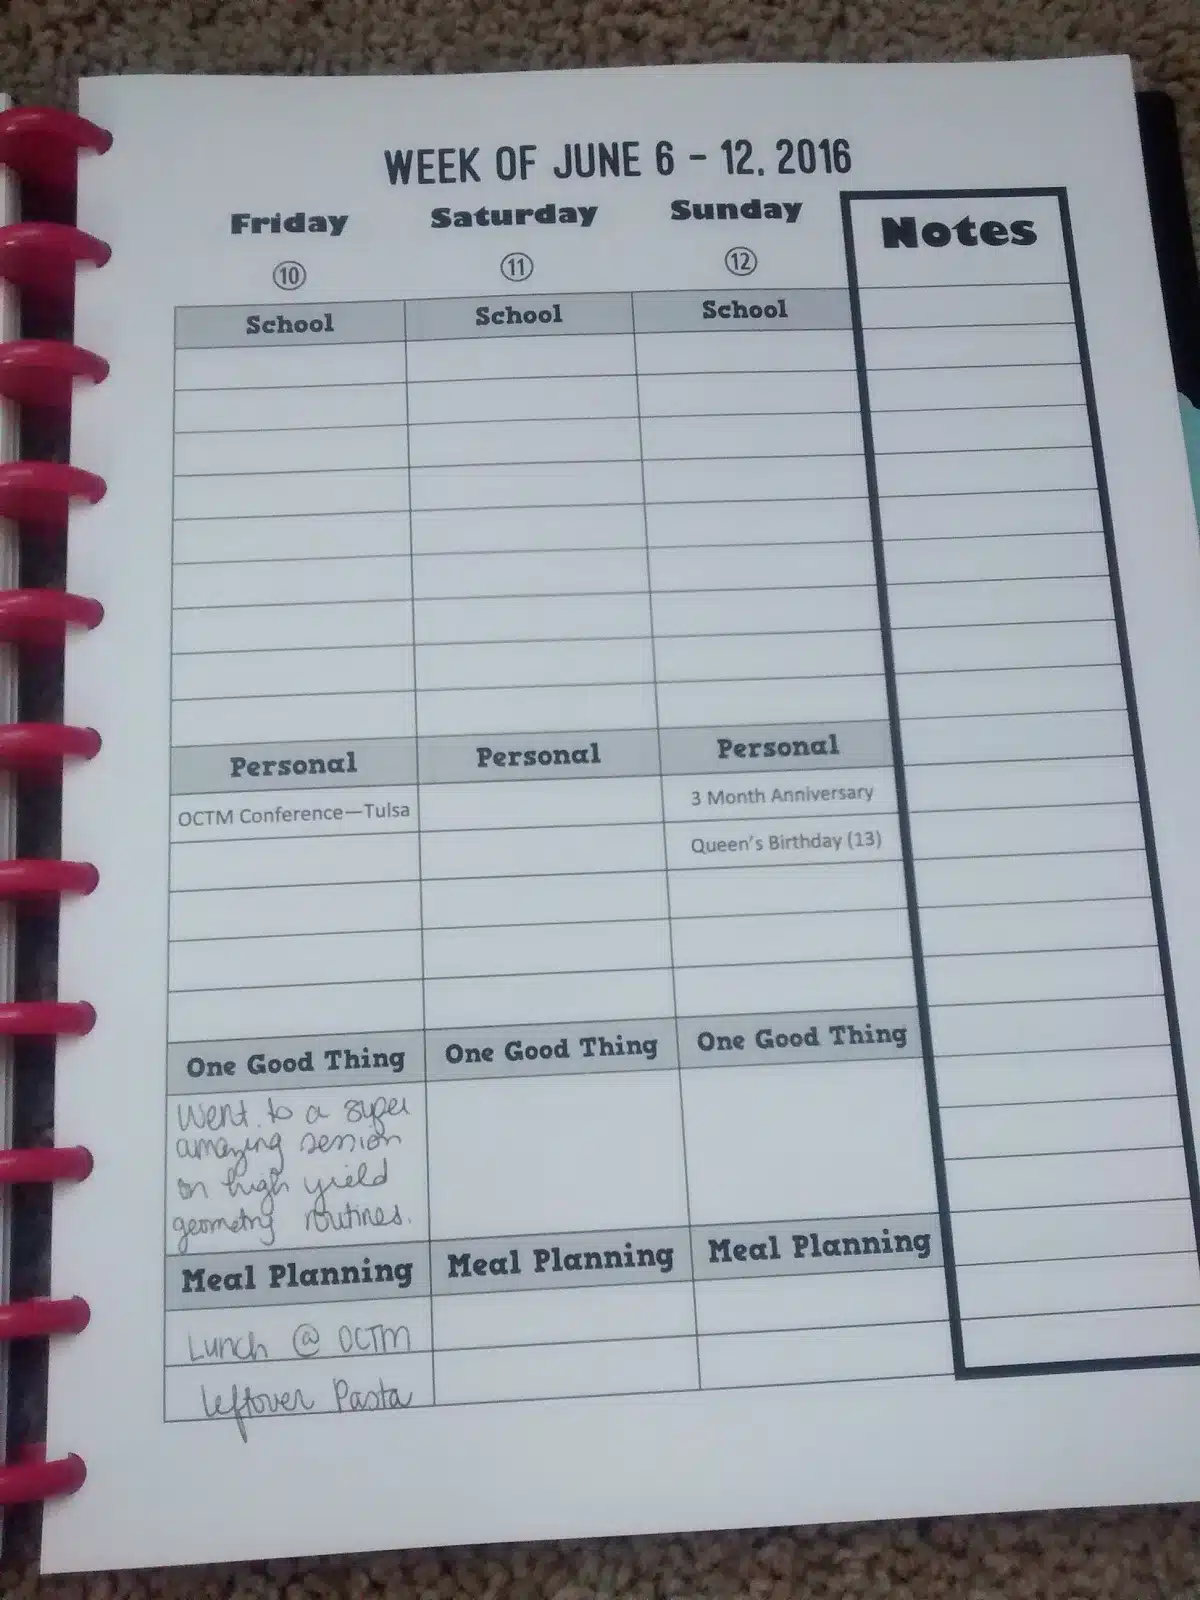 WEEK OF JUNE 6 - 12, 2016
Friday Saturday Sunday Notes
10 11 12
School School School
Personal Personal Personal
OCTM Conference—Tulsa 3 Month Anniversary
Queen's Birthday (13)
One Good Thing One Good Thing One Good Thing
Went to a super
amazing session
on high yield
geometry routines.
Meal Planning Meal Planning Meal Planning
Lunch @ OCTM
leftover Pasta